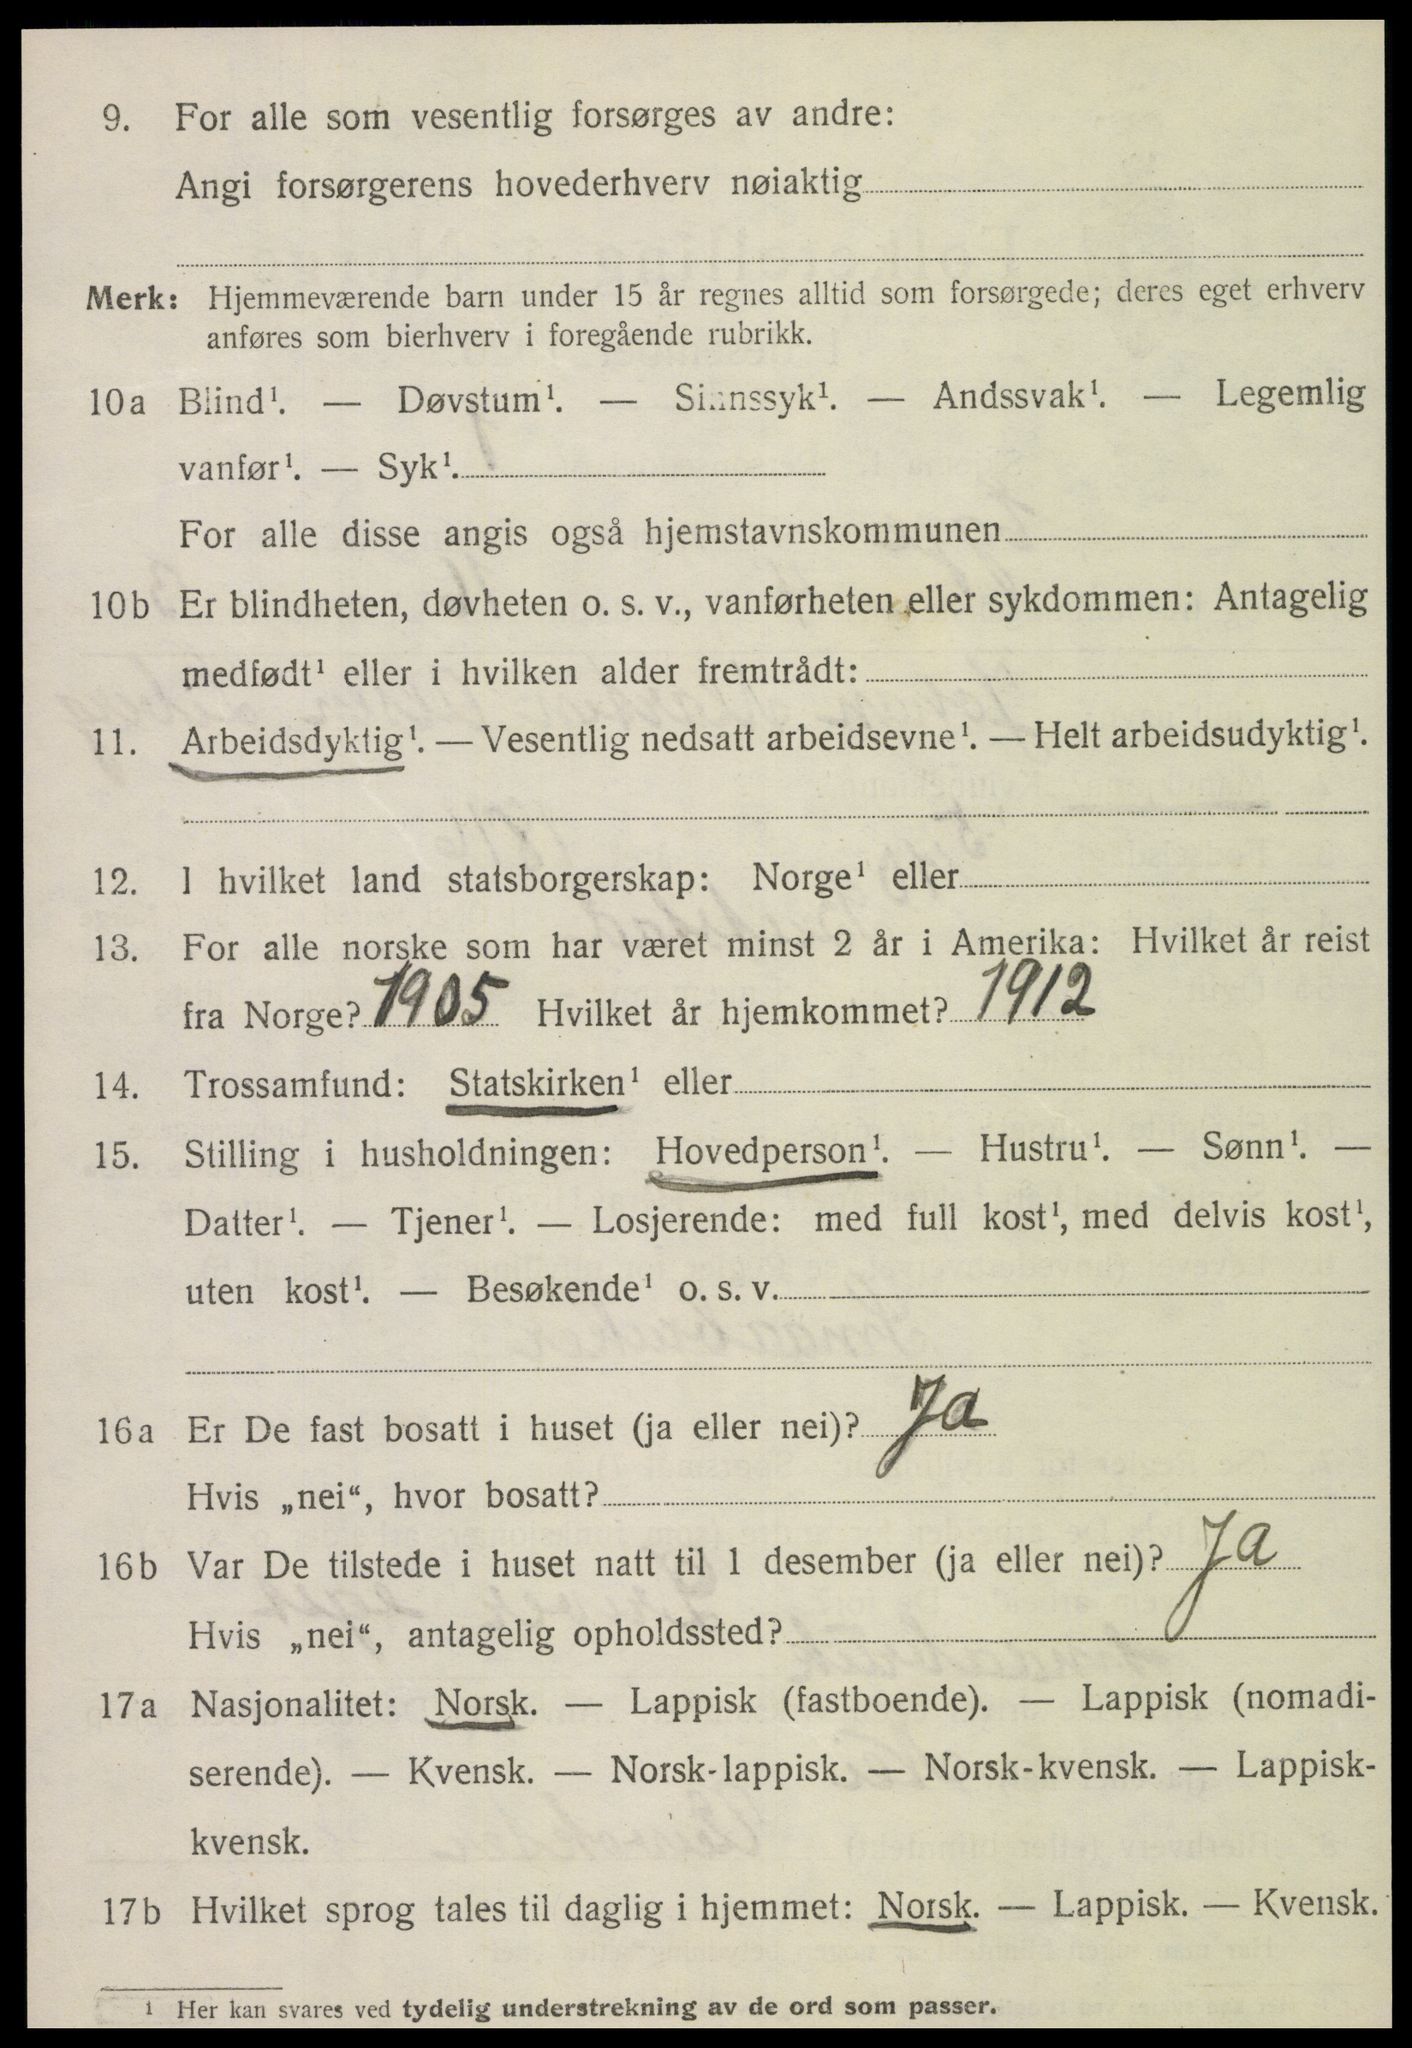 9. For alle som vesentlig forsørges av andre:
Angi forsørgerens hovederhverv nøiaktig
Merk: Hjemmeværende barn under 15 år regnes alltid som forsørgede; deres eget erhverv
anføres som bierhverv i foregående rubrikk.
10a Blind¹. — Døvstum¹. — Sinnssyk¹. — Andssvak¹. — Legemlig
vanfør¹. — Syk¹.
For alle disse angis også hjemstavnskommunen
10b Er blindheten, døvheten o. s. v., vanførheten eller sykdommen: Antagelig
medfødt¹ eller i hvilken alder fremtrådt:
11. Arbeidsdyktig¹. — Vesentlig nedsatt arbeidsevne¹. — Helt arbeidsudyktig¹.
12. I hvilket land statsborgerskap: Norge¹ eller
13. For alle norske som har været minst 2 år i Amerika: Hvilket år reist
fra Norge? 1905 Hvilket år hjemkommet? 1912
14. Trossamfund: Statskirken¹ eller
15. Stilling i husholdningen: Hovedperson¹. — Hustru¹. — Sønn¹. —
Datter¹. — Tjener¹. — Losjerende: med full kost¹, med delvis kost¹,
uten kost¹. — Besøkende¹ o. s. v.
16a Er De fast bosatt i huset (ja eller nei)? Ja
Hvis „nei“, hvor bosatt?
16b Var De tilstede i huset natt til 1 desember (ja eller nei)? Ja
Hvis „nei“, antagelig opholdssted?
17a Nasjonalitet: Norsk. — Lappisk (fastboende). — Lappisk (nomadi-
serende). — Kvensk. — Norsk-lappisk. — Norsk-kvensk. — Lappisk-
kvensk.
17b Hvilket sprog tales til daglig i hjemmet: Norsk. — Lappisk. — Kvensk.
¹ Her kan svares ved tydelig understrekning av de ord som passer.